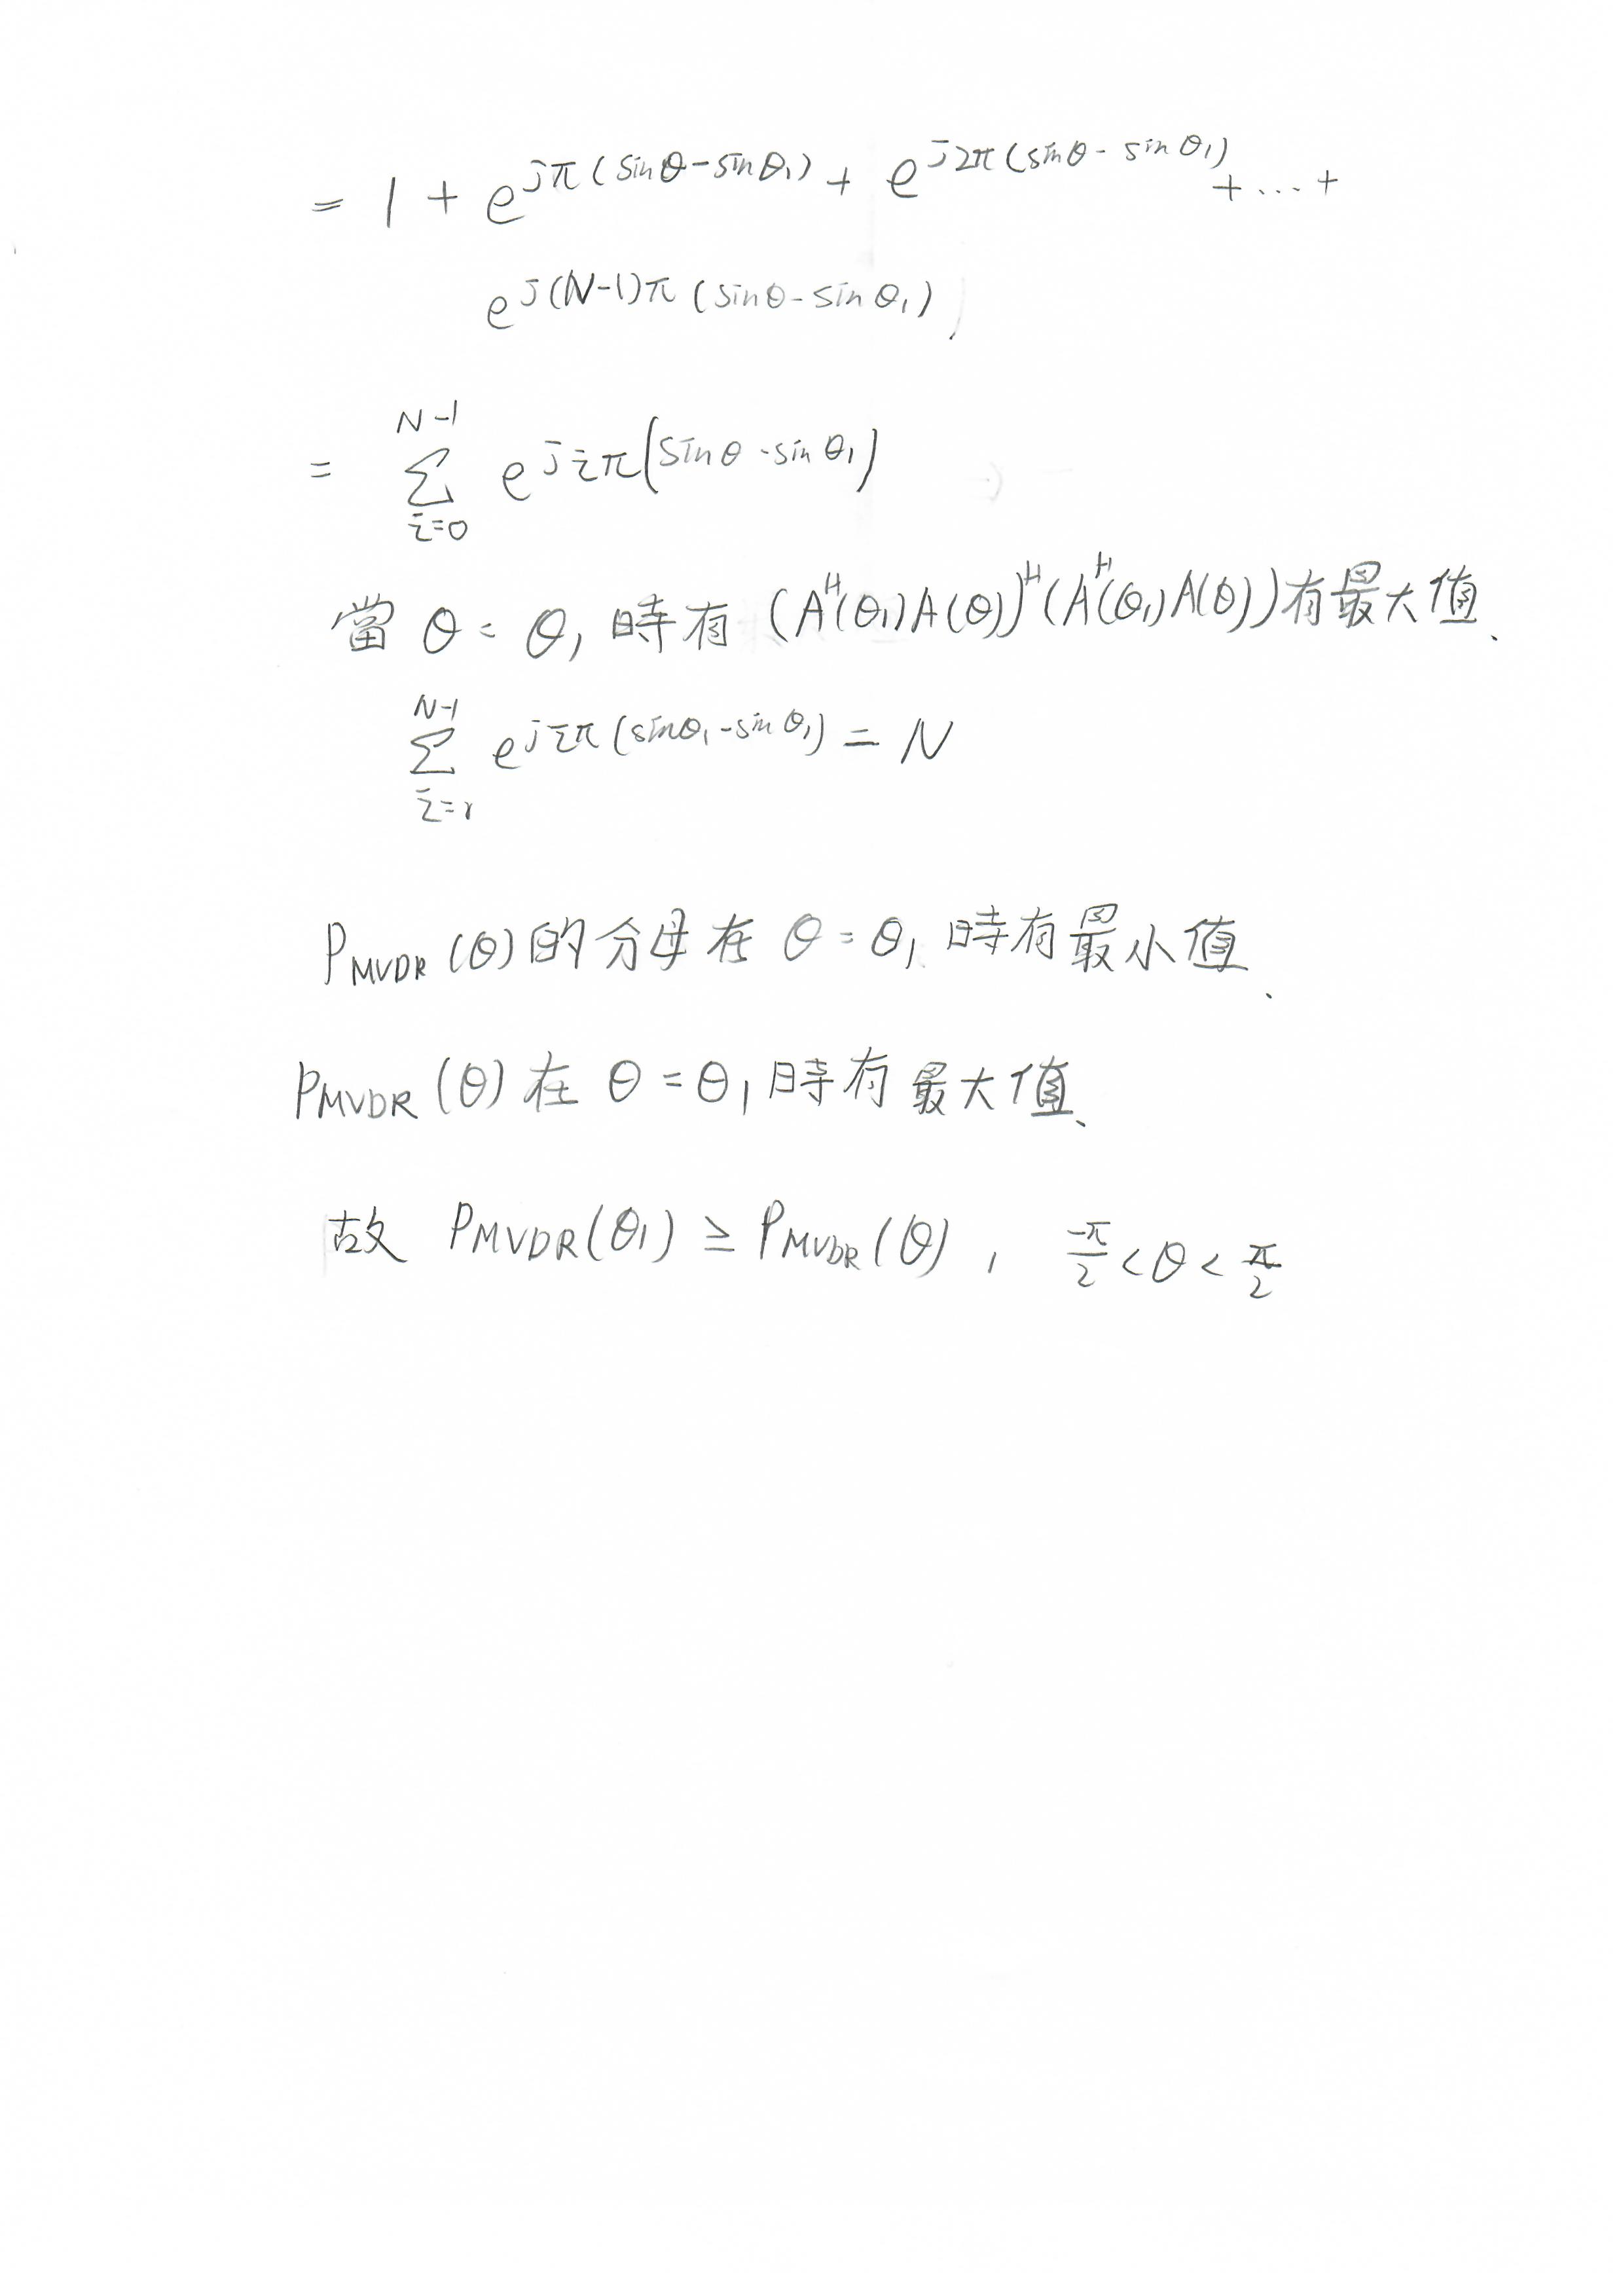 = 1 + e^{jπ(sinθ-sinθ₁)} + e^{j2π(sinθ-sinθ₁)} + ... +
e^{j(N-1)π(sinθ-sinθ₁)}
= \sum_{i=0}^{N-1} e^{jiπ(sinθ-sinθ₁)}
當 θ = θ₁ 時有 (A^H(θ₁)A(θ))^H(A^H(θ₁)A(θ)) 有最大值、
\sum_{i=1}^{N-1} e^{jiπ(sinθ₁-sinθ₁)} = N
P_{MVDR}(θ) 的分母在 θ = θ₁ 時有最小值、
P_{MVDR}(θ) 在 θ = θ₁ 時有最大值、
故 P_{MVDR}(θ₁) ≥ P_{MVDR}(θ) , \frac{-π}{2} < θ < \frac{π}{2}